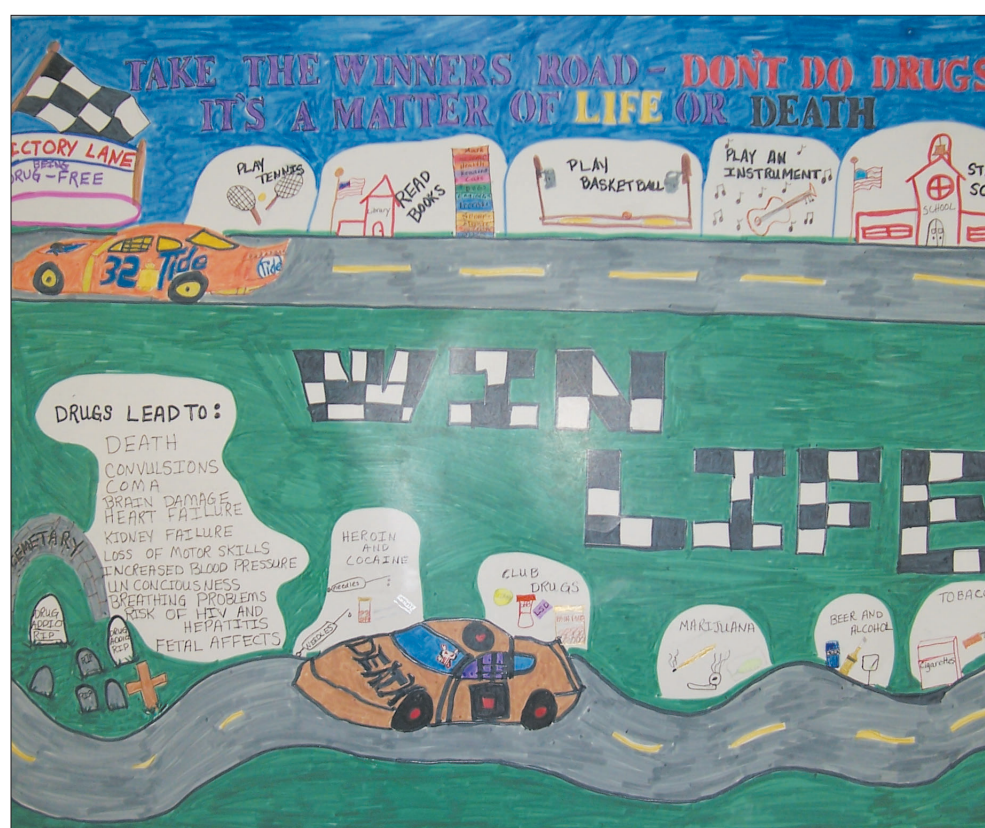 TAKE THE WINNERS ROAD - DON'T DO DRUGS
IT'S A MATTER OF LIFE OR DEATH
ICTORY LANE
BEING
DRUG-FREE
PLAY
TENNIS
Library
READ
BOOKS
PLAY
BASKETBALL
PLAY AN
INSTRUMENT
ST
SC
SCHOOL
32 Tide
Tide
WIN
LIFE
DRUGS LEAD TO:
DEATH
CONVULSIONS
COMA
BRAIN DAMAGE
HEART FAILURE
KIDNEY FAILURE
LOSS OF MOTOR SKILLS
INCREASED BLOOD PRESSURE
UNCONCIOUSNESS
BREATHING PROBLEMS
RISK OF HIV AND
HEPATITIS
FETAL AFFECTS
CEMETARY
DRUG
ADDICT
RIP
DRUG
ADDICT
RIP
RIP
RIP
HEROIN
AND
COCAINE
needles
NEEDLES
CLUB
DRUGS
LSD
DEATH
MARIJUANA
BEER AND
ALCOHOL
TOBACC
Cigarettes